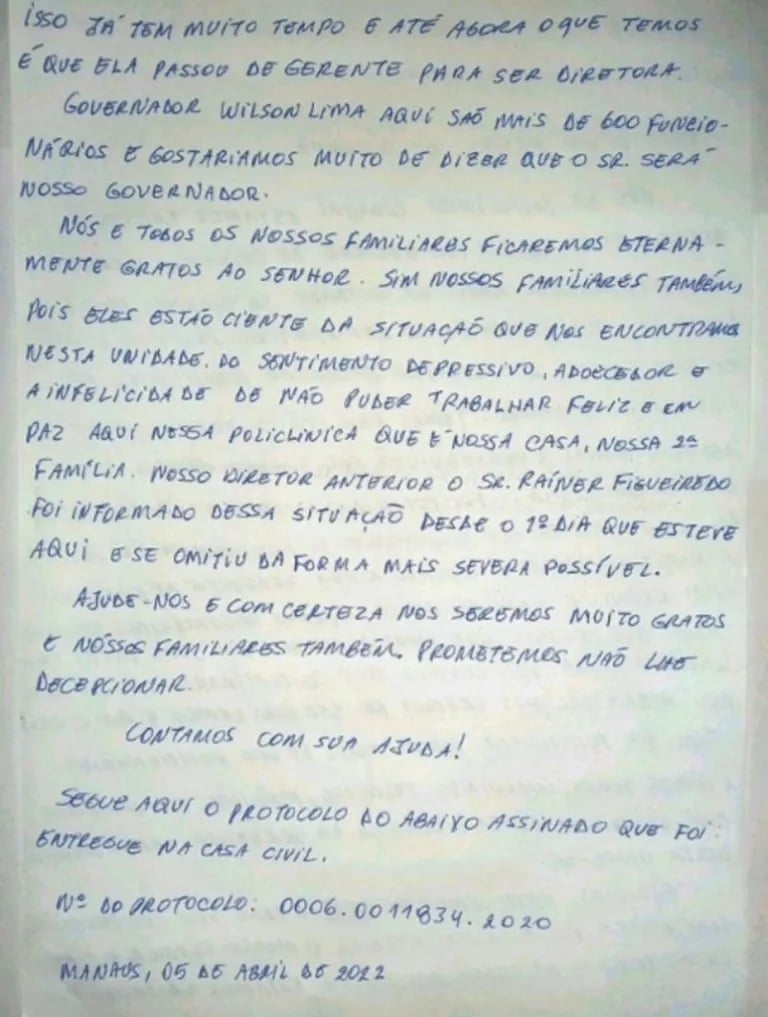 ISSO JÁ TEM MUITO TEMPO E ATÉ AGORA O QUE TEMOS
É QUE ELA PASSOU DE GERENTE PARA SER DIRETORA.
GOVERNADOR WILSON LIMA AQUI SAÕ MAIS DE 600 FUNCIO-
NÁRIOS E GOSTARIAMOS MUITO DE DIZER QUE O SR. SERÁ
NOSSO GOVERNADOR.
NÓS E TODOS OS NOSSOS FAMILIARES FICAREMOS ETERNA-
MENTE GRATOS AO SENHOR. SIM NOSSOS FAMILIARES TAMBÉM,
POIS ELES ESTÃO CIENTE DA SITUAÇÃO QUE NOS ENCONTRAMOS
NESTA UNIDADE. DO SENTIMENTO DEPRESSIVO, ADOECEDOR E
A INFELICIDADE DE NÃO PUDER TRABALHAR FELIZ E EM
PAZ AQUI NESSA POLICLINICA QUE É NOSSA CASA, NOSSA 2ª
FAMÍLIA. NOSSO DIRETOR ANTERIOR O SR. RAÍNER FIGUEIREDO
FOI INFORMADO DESSA SITUAÇÃO DESDE O 1º DIA QUE ESTEVE
AQUI E SE OMITIU DA FORMA MAIS SEVERA POSSÍVEL.
AJUDE-NOS E COM CERTEZA NOS SEREMOS MUITO GRATOS
E NÓSSOS FAMILIARES TAMBÉM. PROMETEMOS NAÕ LHE
DECEPCIONAR.
CONTAMOS COM SUA AJUDA!
SEGUE AQUI O PROTOCOLO DO ABAIXO ASSINADO QUE FOI
ENTREGUE NA CASA CIVIL.
Nº DO PROTOCOLO: 0006.0011834.2020
MANAUS, 05 DE ABRIL DE 2022